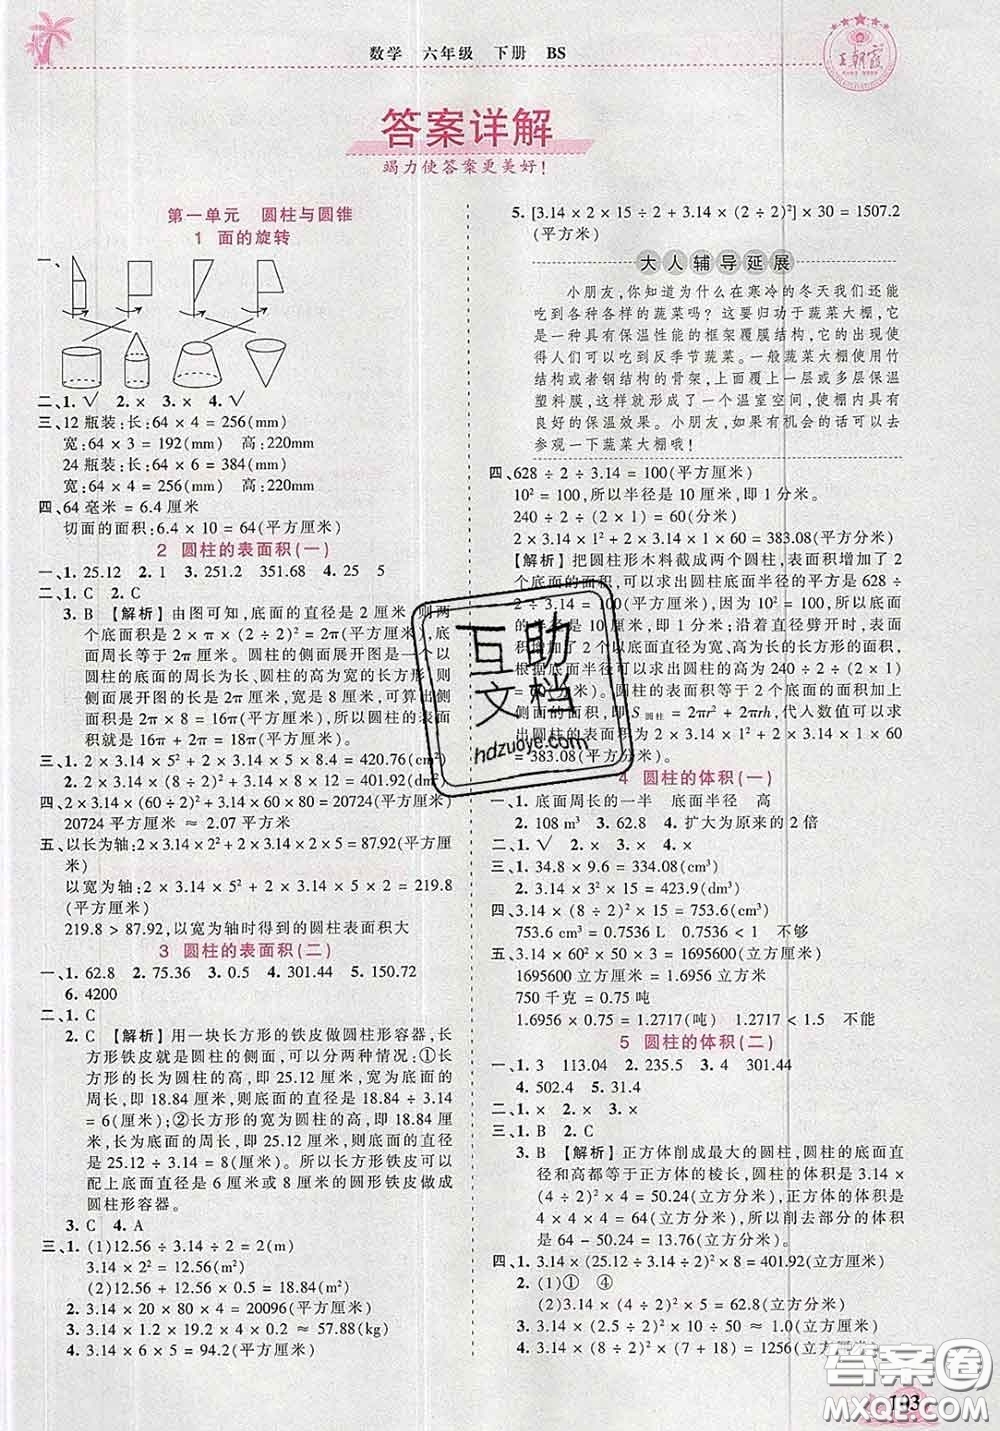 数学 六年级 下册 BS
王朝霞
答案详解
竭力使答案更美好!
第一单元 圆柱与圆锥
1 面的旋转
一、
二、1. √ 2. × 3. × 4. √
三、12 瓶装:长:64 × 4 = 256(mm)
宽:64 × 3 = 192(mm) 高:220mm
24 瓶装:长:64 × 6 = 384(mm)
宽:64 × 4 = 256(mm) 高:220mm
四、64 毫米 = 6.4 厘米
切面的面积:6.4 × 10 = 64(平方厘米)
2 圆柱的表面积(一)
一、1. 25.12 2. 1 3. 251.2 351.68 4. 25 5
二、1. C 2. C
3. B 【解析】由图可知,底面的直径是 2 厘米,则两
个底面积是 2 × π × (2 ÷ 2)² = 2π(平方厘米),底
面周长等于 2π 厘米。圆柱的侧面展开图是一个以
圆柱的底面的周长为长、圆柱的高为宽的长方形,则
侧面展开图的长是 2π 厘米,宽是 8 厘米,可算出侧
面积是 2π × 8 = 16π(平方厘米),所以圆柱的表面
积就是 16π + 2π = 18π(平方厘米)。
三、1. 2 × 3.14 × 5² + 2 × 3.14 × 5 × 8.4 = 420.76(cm²)
2. 2 × 3.14 × (8 ÷ 2)² + 3.14 × 8 × 12 = 401.92(dm²)
四、2 × 3.14 × (60 ÷ 2)² + 3.14 × 60 × 80 = 20724(平方厘米)
20724 平方厘米 ≈ 2.07 平方米
五、以长为轴:2 × 3.14 × 2² + 2 × 3.14 × 2 × 5 = 87.92(平方厘
米)
以宽为轴:2 × 3.14 × 5² + 2 × 3.14 × 5 × 2 = 219.8
(平方厘米)
219.8 > 87.92,以宽为轴时得到的圆柱表面积大
3 圆柱的表面积(二)
一、1. 62.8 2. 75.36 3. 0.5 4. 301.44 5. 150.72
6. 4200
二、1. C
2. C 【解析】用一块长方形的铁皮做圆柱形容器,长
方形铁皮就是圆柱的侧面,可以分两种情况:①长方
形的长为圆柱的高,即 25.12 厘米,宽为底面的周
长,即 18.84 厘米,则底面的直径是 18.84 ÷ 3.14 =
6(厘米);②长方形的宽为圆柱的高,即 18.84 厘
米,长为底面的周长,即 25.12 厘米,则底面的直径
是 25.12 ÷ 3.14 = 8(厘米)。所以圆柱形铁皮可以
配上底面直径是 6 厘米或 8 厘米的圆形铁皮做成
圆柱形容器。
3. C 4. A
三、1. (1)12.56 ÷ 3.14 ÷ 2 = 2(m)
3.14 × 2² = 12.56(m²)
(2)12.56 + 12.56 × 0.5 = 18.84(m²)
2. 3.14 × 20 × 80 × 4 = 20096(平方厘米)
3. 3.14 × 1.2 × 19.2 × 4 × 0.2 ≈ 57.88(kg)
4. 3.14 × 6 × 5 = 94.2(平方厘米)
5. [3.14 × 2 × 15 ÷ 2 + 3.14 × (2 ÷ 2)²] × 30 = 1507.2
(平方米)
大人辅导延展
小朋友,你知道为什么在寒冷的冬天我们还能
吃到各种各样的蔬菜吗? 这要归功于蔬菜大棚,它
是一种具有保温性能的框架覆膜结构,它的出现使
得人们可以吃到反季节蔬菜。一般蔬菜大棚使用竹
结构或者钢结构的骨架,上面覆上一层或多层保温
塑料膜,这样就形成了一个温室空间,使棚内具有良
好的保温效果。小朋友,如果有机会的话可以去
参观一下蔬菜大棚哦!
四、628 ÷ 2 ÷ 3.14 = 100(平方厘米)
10² = 100,所以半径是 10 厘米,即 1 分米。
240 ÷ 2 ÷ (2 × 1) = 60(分米)
2 × 3.14 × 1² + 2 × 3.14 × 1 × 60 = 383.08(平方分米)
【解析】把圆柱形木料截成两个圆柱,表面积增加了 2
个底面的面积,可以求出圆柱底面半径的平方是 628 ÷
2 ÷ 3.14 = 100(平方厘米),因为 10² = 100,所以底面
的半径是 10 厘米,即 1 分米;沿着直径劈开时,表面积
增加了两个以底面直径为宽,高为长的长方形的面积,
根据底面半径可以求出圆柱的高为 240 ÷ 2 ÷ (2 × 1)
= 60(分米)。圆柱的表面积等于 2 个底面的面积加上
侧面的面积,即 S圆柱 = 2πr² + 2πrh,代入数值可以求
出圆柱的表面积为 2 × 3.14 × 1² + 2 × 3.14 × 1 × 60
= 383.08(平方分米)。
4 圆柱的体积(一)
一、1. 底面周长的一半 底面半径 高
2. 108 m³ 3. 62.8 4. 扩大为原来的 2 倍
二、1. √ 2. × 3. × 4. ×
三、1. 34.8 × 9.6 = 334.08(cm³)
2. 3.14 × 3² × 15 = 423.9(dm³)
四、3.14 × (8 ÷ 2)² × 15 = 753.6(cm³)
753.6 cm³ = 0.7536 L 0.7536 < 1 不够
五、3.14 × 60² × 50 × 3 = 1695600(立方厘米)
1695600 立方厘米 = 1.6956 立方米
750 千克 = 0.75 吨
1.6956 × 0.75 = 1.2717(吨) 1.2717 < 1.5 不能
5 圆柱的体积(二)
一、1. 3 113.04 2. 235.5 3. 4 301.44
4. 502.4 5. 31.4
二、1. B 2. C
3. B 【解析】正方体削成最大的圆柱,圆柱的底面直
径和高都等于正方体的棱长,圆柱的体积是 3.14 ×
(4 ÷ 2)² × 4 = 50.24(立方分米),正方体的体积是
4 × 4 × 4 = 64(立方分米),所以削去部分的体积
是 64 - 50.24 = 13.76(立方分米)。
四、1. 3.14 × (25.12 ÷ 3.14 ÷ 2)² × 8 = 401.92(立方厘米)
2. (1)① ④
(2)3.14 × (4 ÷ 2)² × 5 = 62.8(立方分米)
3. 3.14 × (2.5 ÷ 2)² × (10 ÷ 50) ≈ 1.0(立方米)
4. 3.14 × (8 ÷ 2)² × (7 + 18) = 1256(立方厘米)
103
互助
文档
hdzuoye.com
答案圈
MXQE.COM